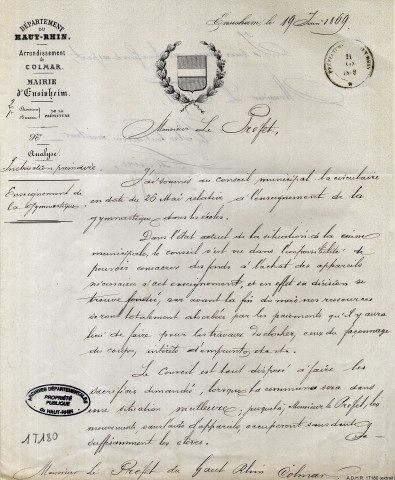 DÉPARTEMENT
DU
HAUT-RHIN.
Arrondissement
de
COLMAR.
MAIRIE
d'Ensisheim.
Division
Bureau
DE LA
PRÉFECTURE
N°
Analyse.
Instruction primaire
Enseignement de
la Gymnastique.
Ensisheim le 19 Juin 1869
Monsieur Le Préfet,
J'ai soumis au Conseil municipal la circulaire
en date du 26 Mai relative à l'enseignement de la
gymnastique dans les écoles.
Dans l'état actuel de la situation de la caisse
municipale, le conseil s'est vu dans l'impossibilité de
pouvoir consacrer des fonds à l'achat des appareils
nécessaires à cet enseignement, et en effet sa décision se
trouve fondée, car avant la fin du mois nos ressources
seront totalement absorbées par les paiements qu'il y aura
lieu de faire pour les travaux du clocher, ceux du façonnage
de coupes, intérêts d'emprunt etc. etc.
Le Conseil est tout disposé à faire les
sacrifices demandés, lorsque la commune sera dans
une situation meilleure, jusque là, Monsieur le Préfet, les
mouvements, sans l'aide d'appareils occuperont sans doute
suffisamment les élèves.
Je
Monsieur le Préfet du Haut Rhin Colmar
ARCHIVES DÉPARTEMENTALES
PROPRIÉTÉ
PUBLIQUE
du HAUT-RHIN
1T180
A.D.H.R. 1T180